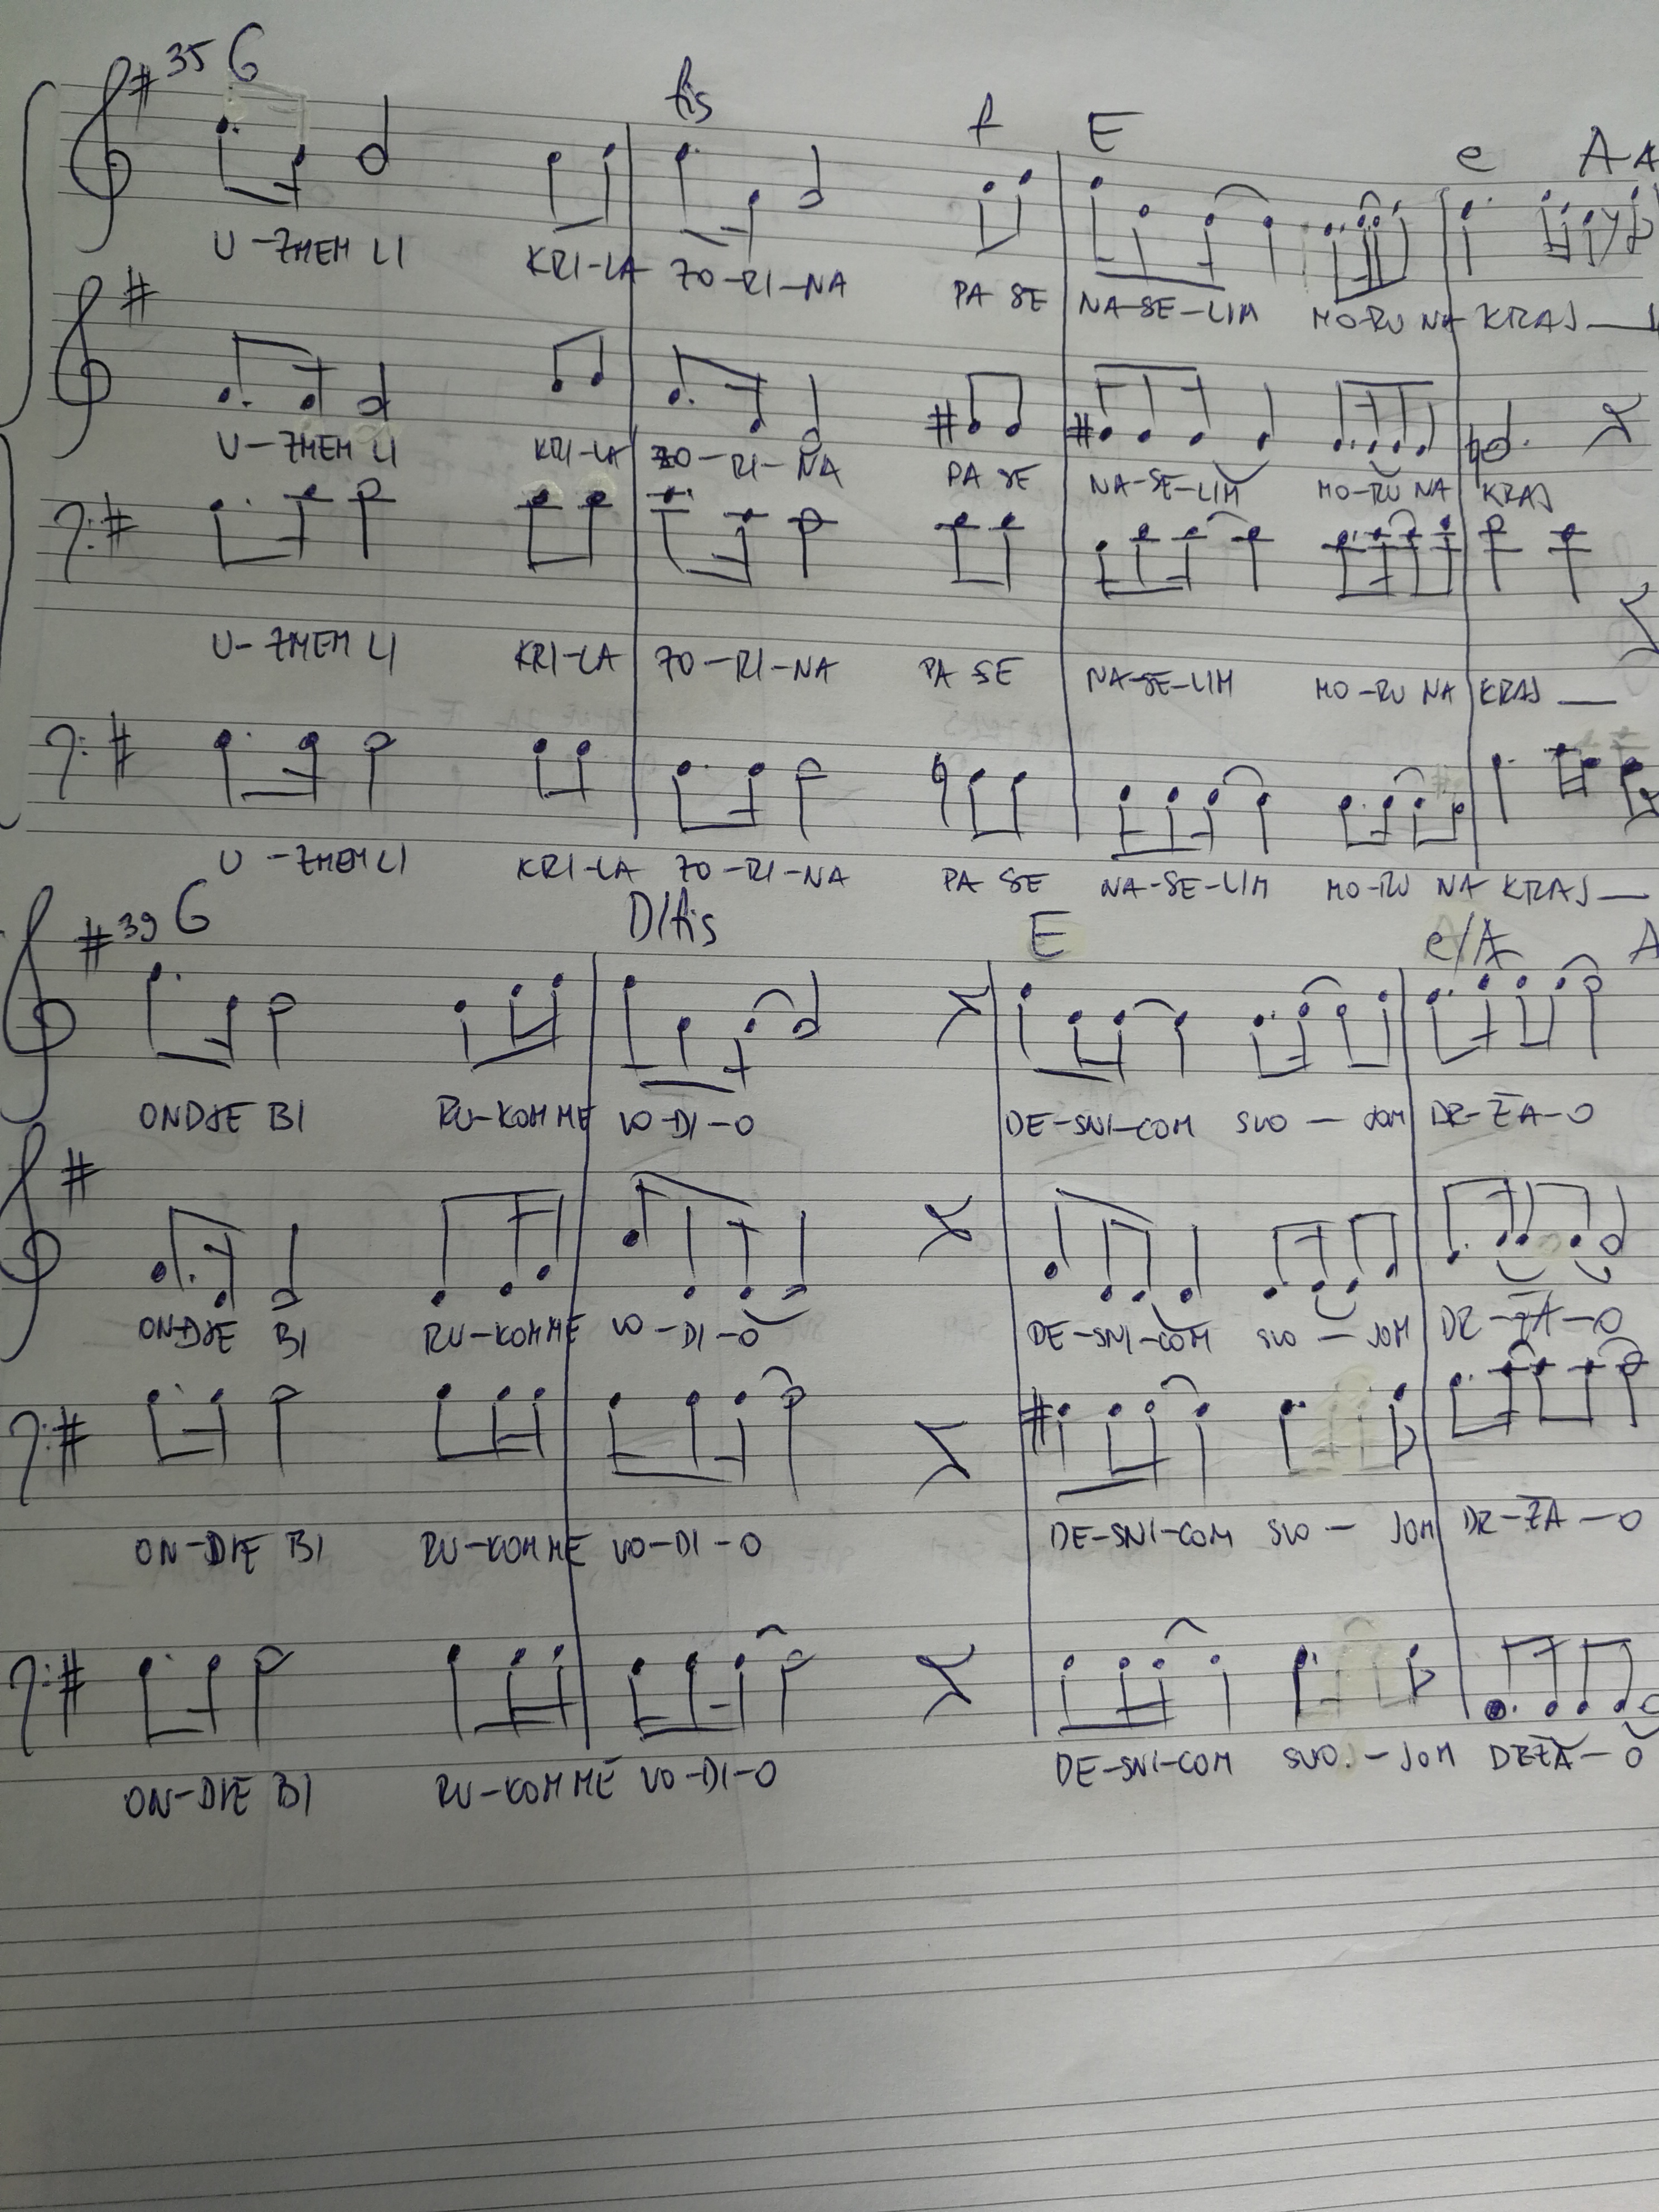 35 G fis f E e A A
U-ZMEM LI KRI-LA ZO-RI-NA PA SE NA-SE-LIM MO-RU NA KRAJ
U-ZMEM LI KRI-LA ZO-RI-NA PA SE NA-SE-LIM MO-RU NA KRAJ
U-ZMEM LI KRI-LA ZO-RI-NA PA SE NA-SE-LIM MO-RU NA KRAJ
U-ZMEM LI KRI-LA ZO-RI-NA PA SE NA-SE-LIM MO-RU NA KRAJ
39 G D/fis E e/A A
ONDJE BI RU-KOM ME VO-DI-O DE-SNI-COM SVO-JOM DR-ŽA-O
ONDJE BI RU-KOM ME VO-DI-O DE-SNI-COM SVO-JOM DR-ŽA-O
ON-DJE BI RU-KOM ME VO-DI-O DE-SNI-COM SVO-JOM DR-ŽA-O
ON-DJE BI RU-KOM ME VO-DI-O DE-SNI-COM SVO-JOM DRŽA-O